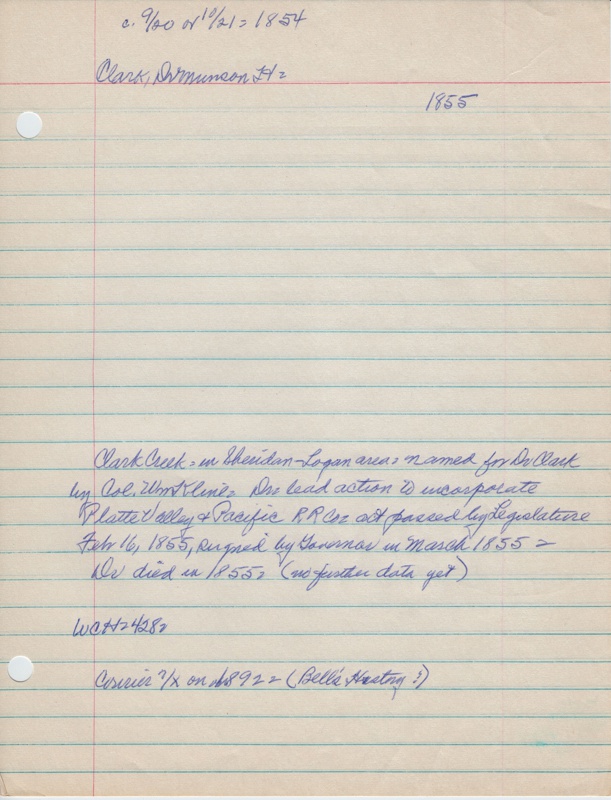 c. 9/20 or 10/21 = 1854
Clark, Dr Munson H =
1855
Clark Creek = in Sheridan-Logan area = named for Dr Clark
by Col. Wm Kline = Dr = lead action to incorporate
Platte Valley & Pacific RR Co = act passed by Legislature
Feb 16, 1855, signed by Governor in March 1855 =
Dr died in 1855 = (no further data yet)
WCH = 428 =
Courier ?/X on 1892 = (Bell's History ?)